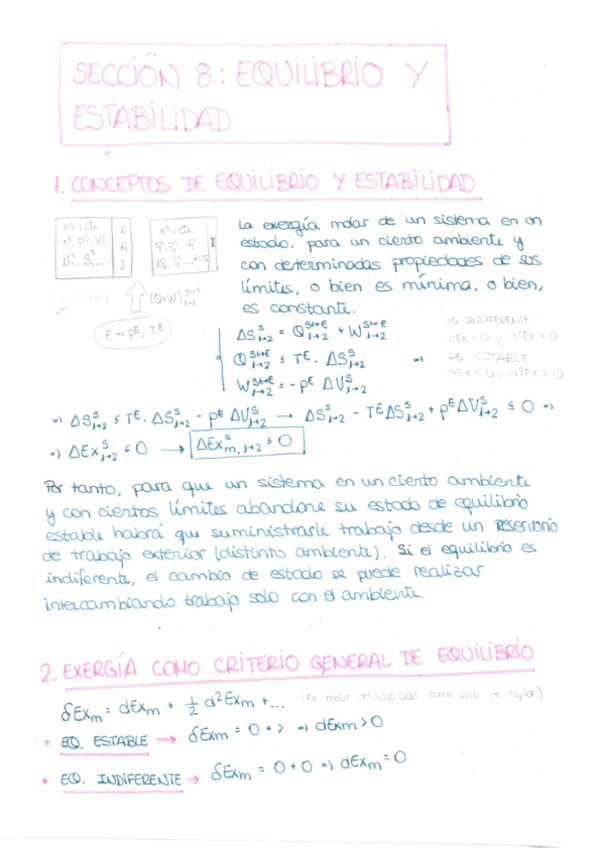 SECCIÓN 8: EQUILIBRIO Y
ESTABILIDAD
1. CONCEPTOS DE EQUILIBRIO Y ESTABILIDAD
nº=cte
Tº, Pº, Vº
R
A
J
nº=cte
I
(Q+W)
E → pᴱ, Tᴱ
La exergía molar de un sistema en un
estado, para un cierto ambiente y
con determinadas propiedades de sus
límites, o bien es mínima, o bien,
es constante.
ΔSˢ₁→₂ = Qˢ↔ᴱ₁→₂ + Wˢ↔ᴱ₁→₂
Qˢ↔ᴱ₁→₂ ≤ Tᴱ. ΔSˢ₁→₂
Wˢ↔ᴱ₁→₂ = - pᴱ ΔVˢ₁→₂
EQ INDIFERENTE
dEx = 0 y d²Ex = 0
EQ ESTABLE
dEx = 0; d²Ex > 0
=> ΔSˢ₁→₂ ≤ Tᴱ. ΔSˢ₁→₂ - pᴱ ΔVˢ₁→₂ → ΔSˢ₁→₂ - TᴱΔSˢ₁→₂ + pᴱΔVˢ₁→₂ ≤ 0 =>
=> ΔExˢ₁→₂ ≤ 0 → ΔExˢm,1→2 ≤ 0
Por tanto, para que un sistema en un cierto ambiente
y con ciertos límites abandone su estado de equilibrio
estable habrá que suministrarle trabajo desde un reservorio
de trabajo exterior (distinto ambiente). Si el equilibrio es
indiferente, el cambio de estado se puede realizar
intercambiando trabajo solo con el ambiente.
2. EXERGÍA COMO CRITERIO GENERAL DE EQUILIBRIO
δExm = dExm + ½ d²Exm + ... (Ex. molar desarrollada como serie de Taylor)
+ EQ. ESTABLE → δExm = 0 + > => dExm > 0
+ EQ. INDIFERENTE → δExm = 0 + 0 => dExm = 0